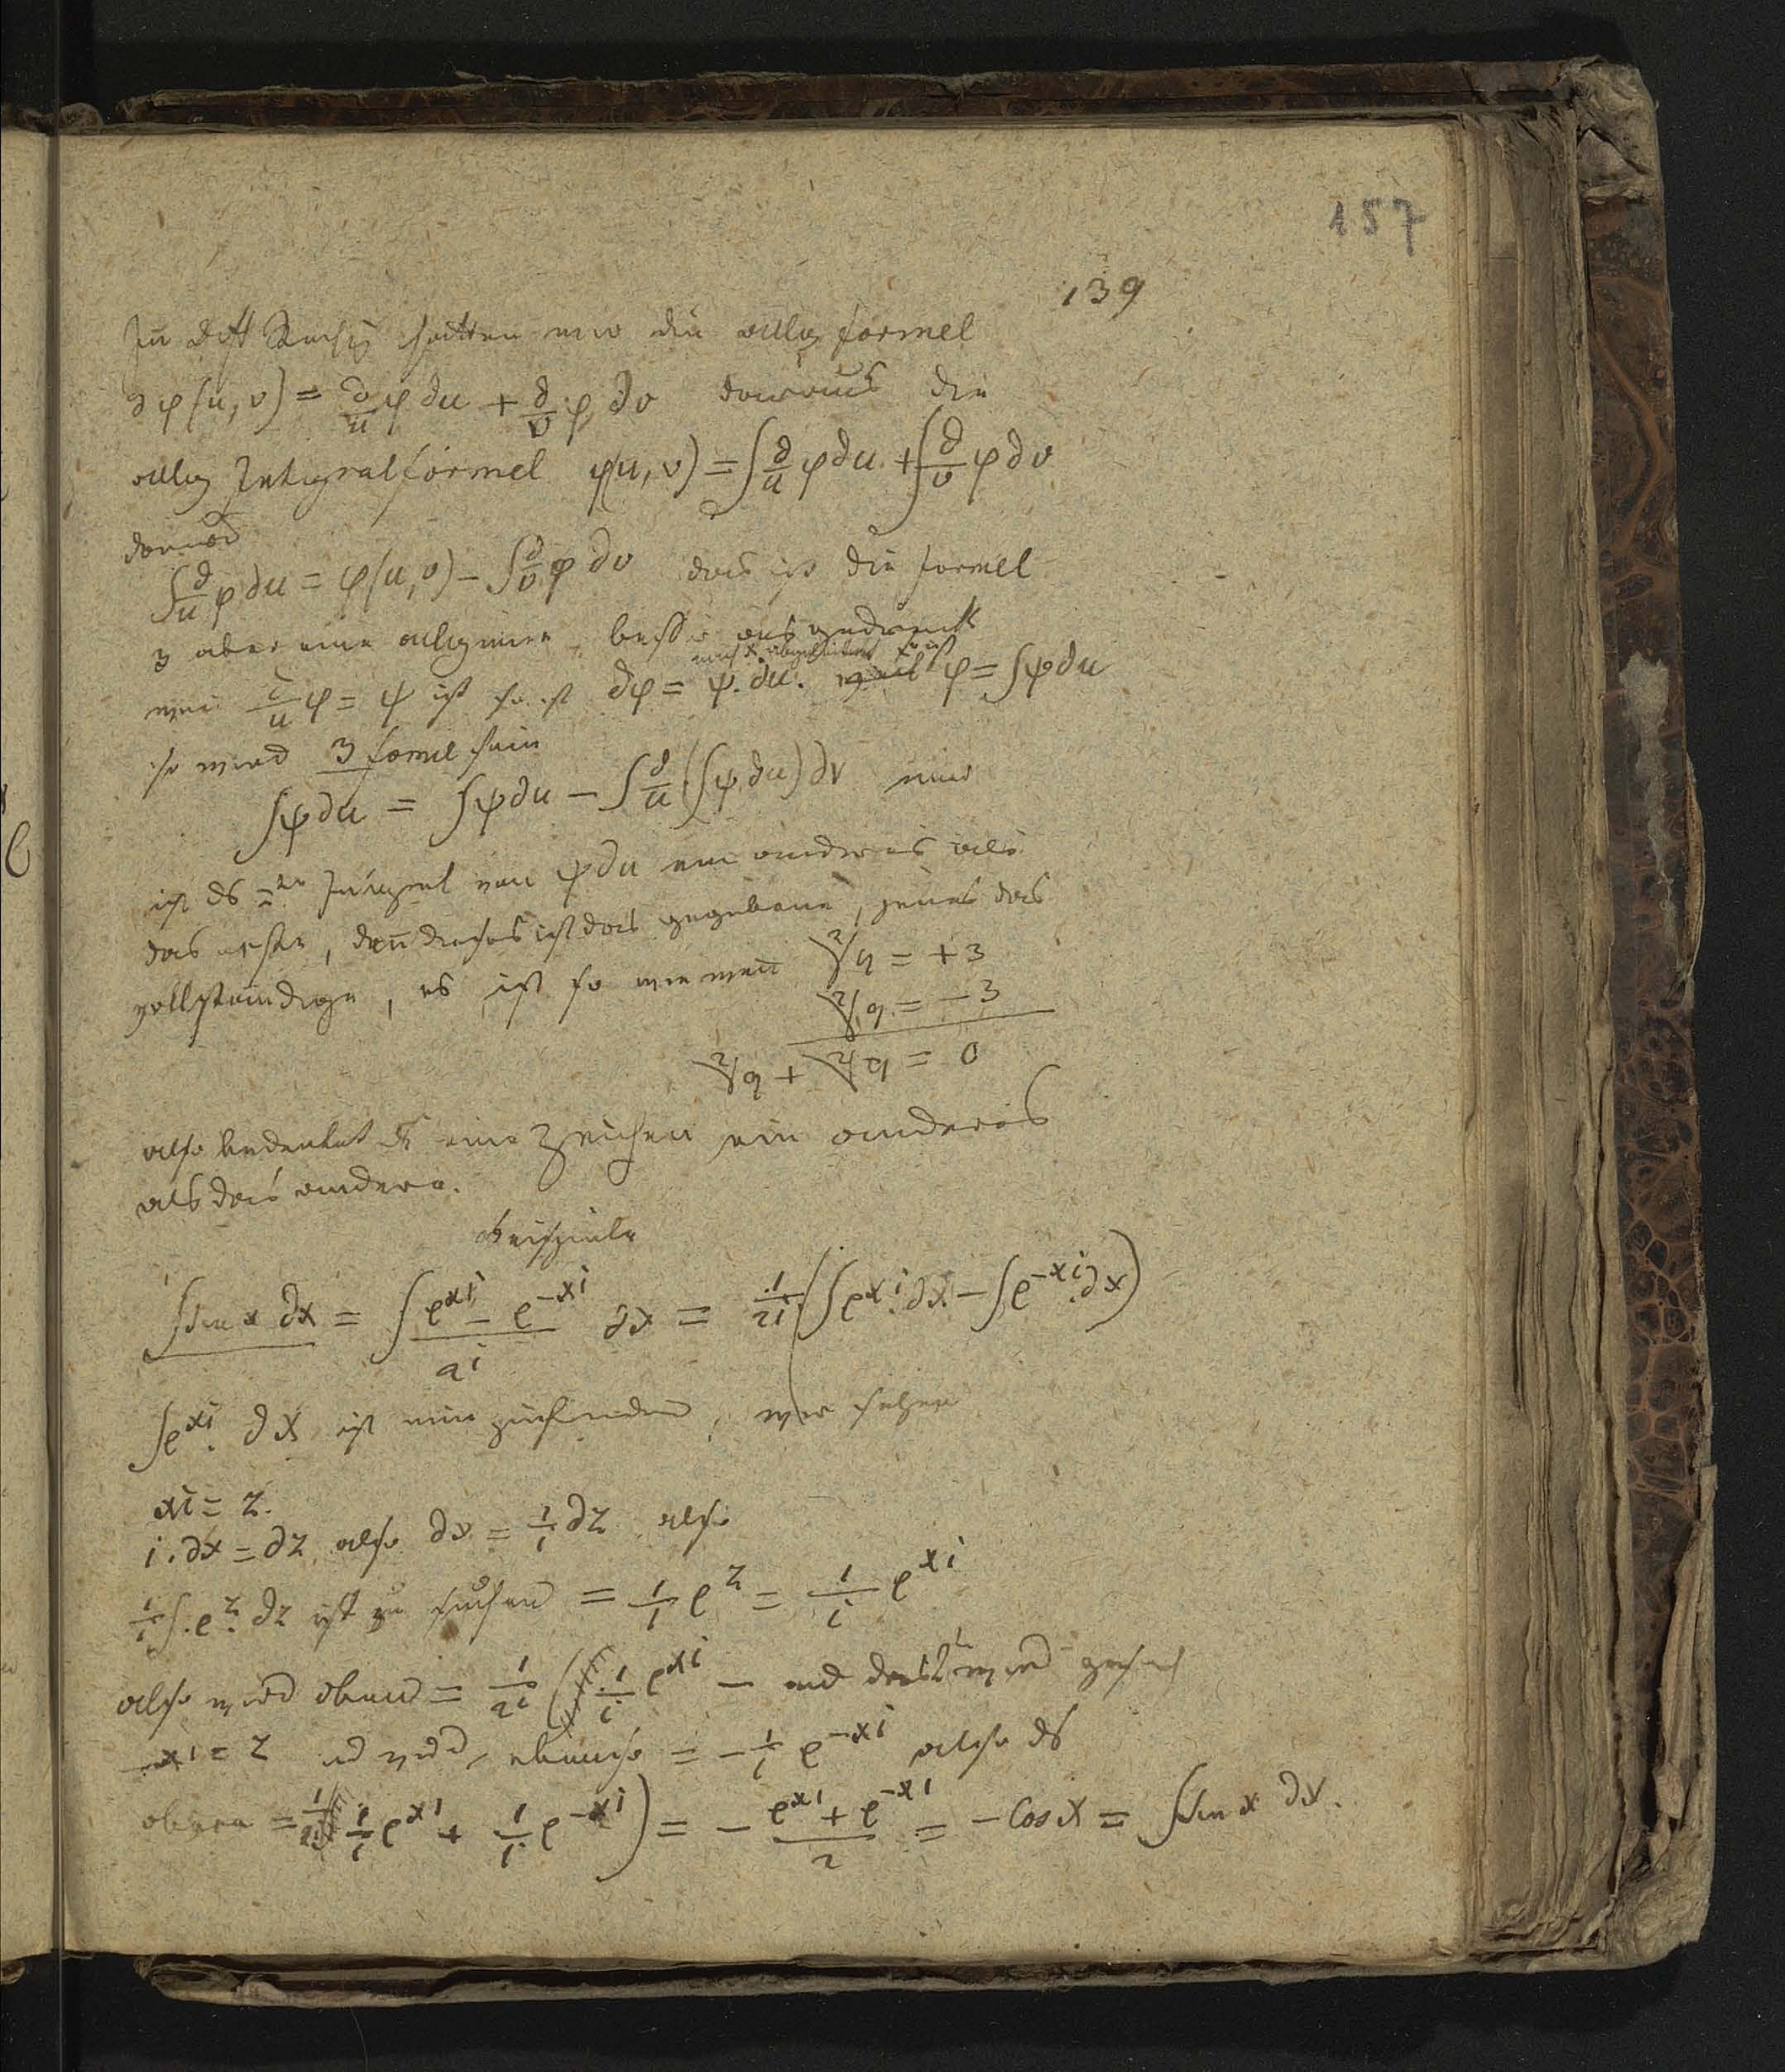 157
139
In diff Rechg hatten wir die allg formel
∂φ(u, v) = ∂/u φ ∂u + ∂/v φ ∂v daraus die
allg Integralformel φ(u, v) = ∫ ∂/u φ ∂u + ∫ ∂/v φ ∂v
∫ ∂/u φ ∂u = φ(u, v) − ∫ ∂/v φ ∂v das ist die formel
3 aber eine allgemeine, besser ausgedruckt
wen ∂/u φ = ψ ist so ist ∂φ = ψ. ∂u. φ = ∫ψ∂u
so wird 3 formel sein
∫ψ∂u = ∫ψ∂u − ∫ ∂/u (∫ψ ∂u) ∂v nur
ist ds 2te Integral von ψ∂u ein anderes als
das erste, den dieses ist das gegebene, jenes das
vollständige, es ist so wie wen ²√9 = + 3
²√9 = − 3
²√9 + ²√9 = 0
also bedeutet ds eine Zeichen ein anderes
als das andere.
Beispiele
∫sin x ∂x = ∫ (e^xi − e^−xi)/2i ∂x = 1/2i (∫e^xi. ∂x − ∫e^−xi. ∂x)
∫e^xi. ∂x ist nun zu finden, wir setzen
xi = z.
i. ∂x = ∂z also ∂x = 1/i ∂z also
1/i ∫. e^z. ∂z ist zu suchen = 1/i e^z = 1/i e^xi
also wird oben = 1/2i ( 1/i e^xi − und das 2te wird
−xi = z ebenso = − 1/i e^−xi also ds
obere = 1/2i ( 1/i e^xi + 1/i e^−xi ) = − (e^xi + e^−xi)/2 = − Cos x = ∫sin x ∂x.